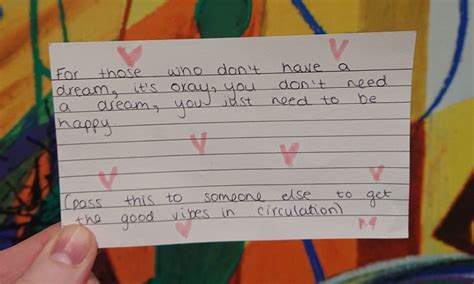 For those who don't have a
dream, it's okay, you don't need
a dream, you just need to be
happy.
(pass this to someone else to get
the good vibes in circulation)